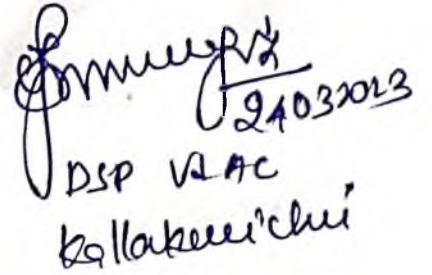 24032023
DSP V&AC
Kallakurichi